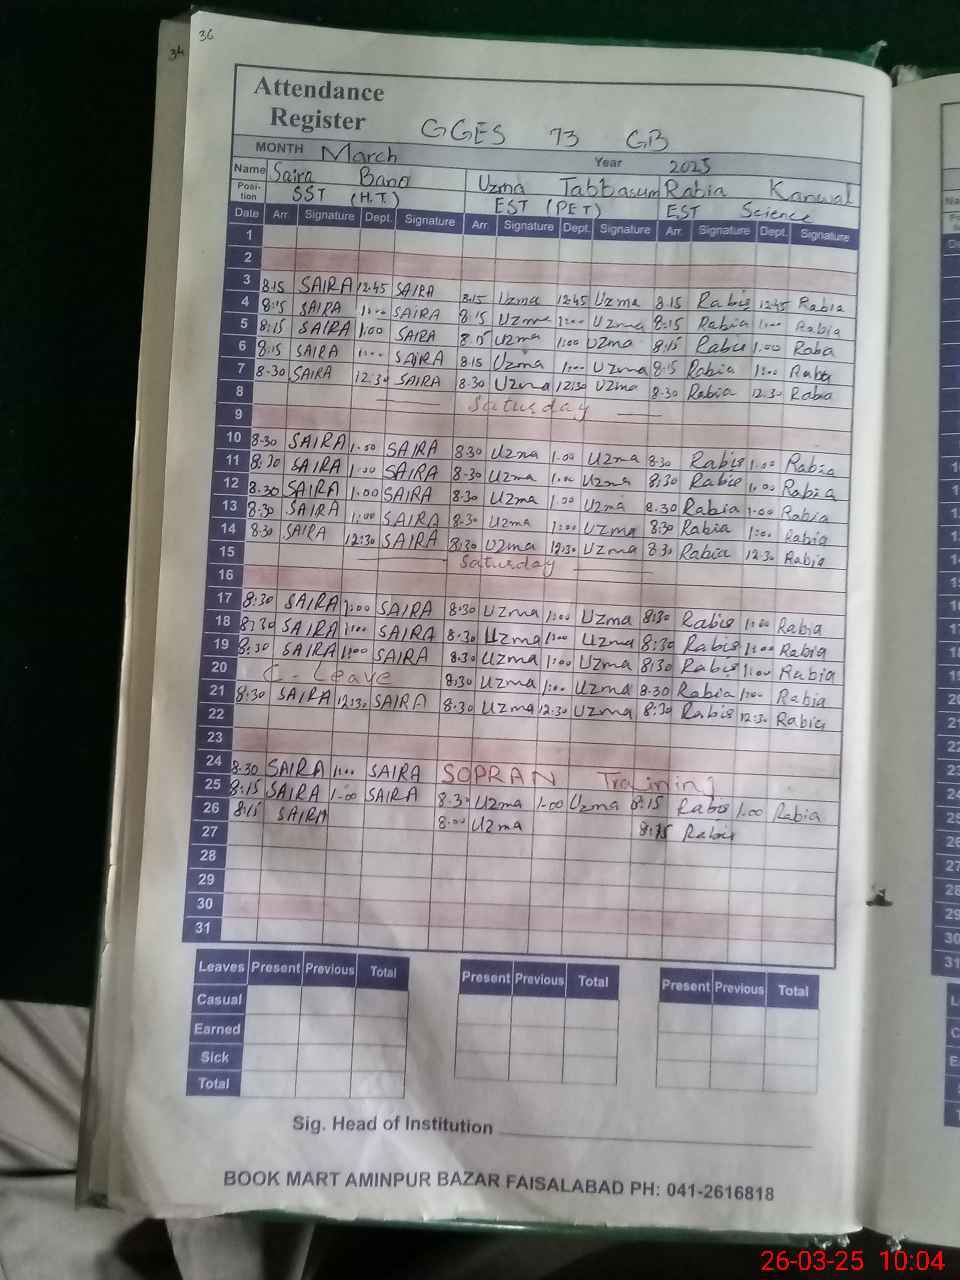 36
34
Attendance
Register
GGES 73 GB
MONTH March Year 2025
Name Saira Bano Uzma Tabbasum Rabia Kanwal
Position SST (H.T.) EST (PET) EST Science
Date Arr. Signature Dept. Signature Arr. Signature Dept. Signature Arr. Signature Dept. Signature
1
2
3 8.15 SAIRA 12.45 SAIRA 8.15 Uzma 12.45 Uzma 8.15 Rabia 12.45 Rabia
4 8:15 SAIRA 1:00 SAIRA 8.15 Uzma 1:00 Uzma 8:15 Rabia 1:00 Rabia
5 8:15 SAIRA 1.00 SAIRA 8.15 Uzma 1.00 Uzma 8:15 Rabia 1.00 Rabia
6 8.15 SAIRA 1:00 SAIRA 8.15 Uzma 1:00 Uzma 8:15 Rabia 1:00 Rabia
7 8.30 SAIRA 12.30 SAIRA 8.30 Uzma 12:30 Uzma 8.30 Rabia 12.30 Rabia
8 Saturday
9
10 8.30 SAIRA 1.00 SAIRA 8.30 Uzma 1.00 Uzma 8.30 Rabia 1.00 Rabia
11 8:30 SAIRA 1:00 SAIRA 8.30 Uzma 1.00 Uzma 8:30 Rabia 1:00 Rabia
12 8.30 SAIRA 1.00 SAIRA 8.30 Uzma 1.00 Uzma 8.30 Rabia 1.00 Rabia
13 8:30 SAIRA 1:00 SAIRA 8.30 Uzma 1:00 Uzma 8:30 Rabia 1:00 Rabia
14 8:30 SAIRA 12:30 SAIRA 8:30 Uzma 12:30 Uzma 8.30 Rabia 12.30 Rabia
15 Saturday
16
17 8:30 SAIRA 1:00 SAIRA 8.30 Uzma 1:00 Uzma 8:30 Rabia 1:00 Rabia
18 8:30 SAIRA 1:00 SAIRA 8.30 Uzma 1:00 Uzma 8:30 Rabia 1:00 Rabia
19 8:30 SAIRA 1:00 SAIRA 8.30 Uzma 1:00 Uzma 8:30 Rabia 1:00 Rabia
20 C-Leave 8:30 Uzma 1:00 Uzma 8.30 Rabia 1:00 Rabia
21 8:30 SAIRA 12:30 SAIRA 8.30 Uzma 12:30 Uzma 8:30 Rabia 12:30 Rabia
22
23
24 8.30 SAIRA 1:00 SAIRA SOPRAN Training
25 8:15 SAIRA 1.00 SAIRA 8.30 Uzma 1.00 Uzma 8:15 Rabia 1.00 Rabia
26 8:15 SAIRA 8.00 Uzma 8:15 Rabia
27
28
29
30
31
Leaves Present Previous Total Present Previous Total Present Previous Total
Casual
Earned
Sick
Total
Sig. Head of Institution
BOOK MART AMINPUR BAZAR FAISALABAD PH: 041-2616818
26-03-25 10:04